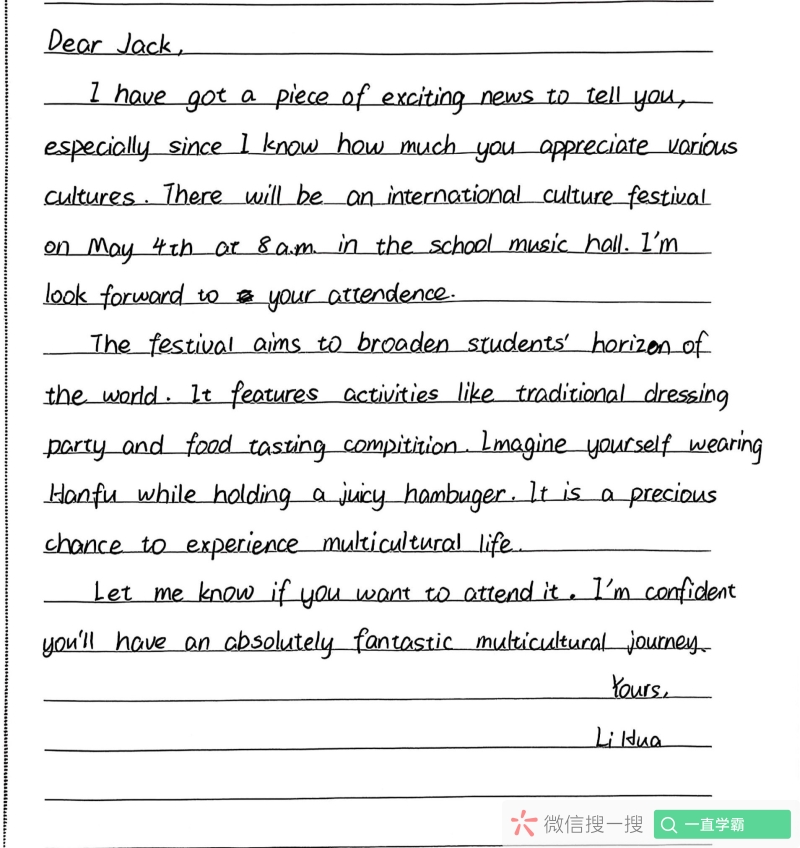 Dear Jack,
I have got a piece of exciting news to tell you,
especially since I know how much you appreciate various
cultures. There will be an international culture festival
on May 4th at 8 a.m. in the school music hall. I'm
look forward to your attendence.
The festival aims to broaden students' horizon of
the world. It features activities like traditional dressing
party and food tasting compitition. Imagine yourself wearing
Hanfu while holding a juicy hambuger. It is a precious
chance to experience multicultural life.
Let me know if you want to attend it. I'm confident
you'll have an absolutely fantastic multicultural journey.
Yours,
Li Hua
微信搜一搜 一直学霸